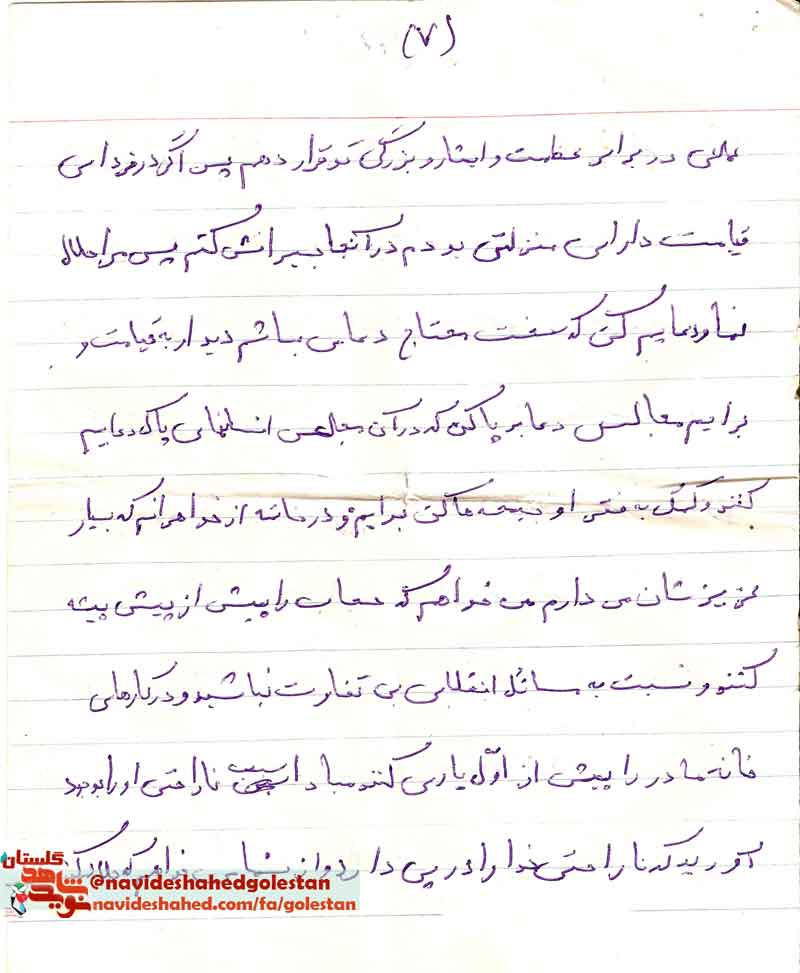 (۷)
عملی در برابر عظمت و ایثار و بزرگی تو قرار دهم پس اگر در فردای
قیامت دارای منزلتی بودم در آنجا جبرانش کنم پس مرا حلال
نما و دعایم کن که سخت محتاج دعایی باشم دیدار به قیامت و
برایم مجالس دعا بر پا کن که در آن مجالس انسانهای پاک دعایم
کنند و کمک به فقرا و خیریه ها کن برایم و در خاتمه از خواهرانم که بسیار
عزیزشان می دارم می خواهم که حجاب را پیش از پیش پیشه
کنند و نسبت به مسائل انقلابی بی تفاوت نباشید و در کارهای
خانه مادر را پیش از اوّل یاری کنند مبادا سبب ناراحتی او را بوجود
آورید که ناراحتی خدا را در پی دارد و از شما می خواهم که حلالم
گلستان
نوید شاهد
@navideshahedgolestan
navideshahed.com/fa/golestan